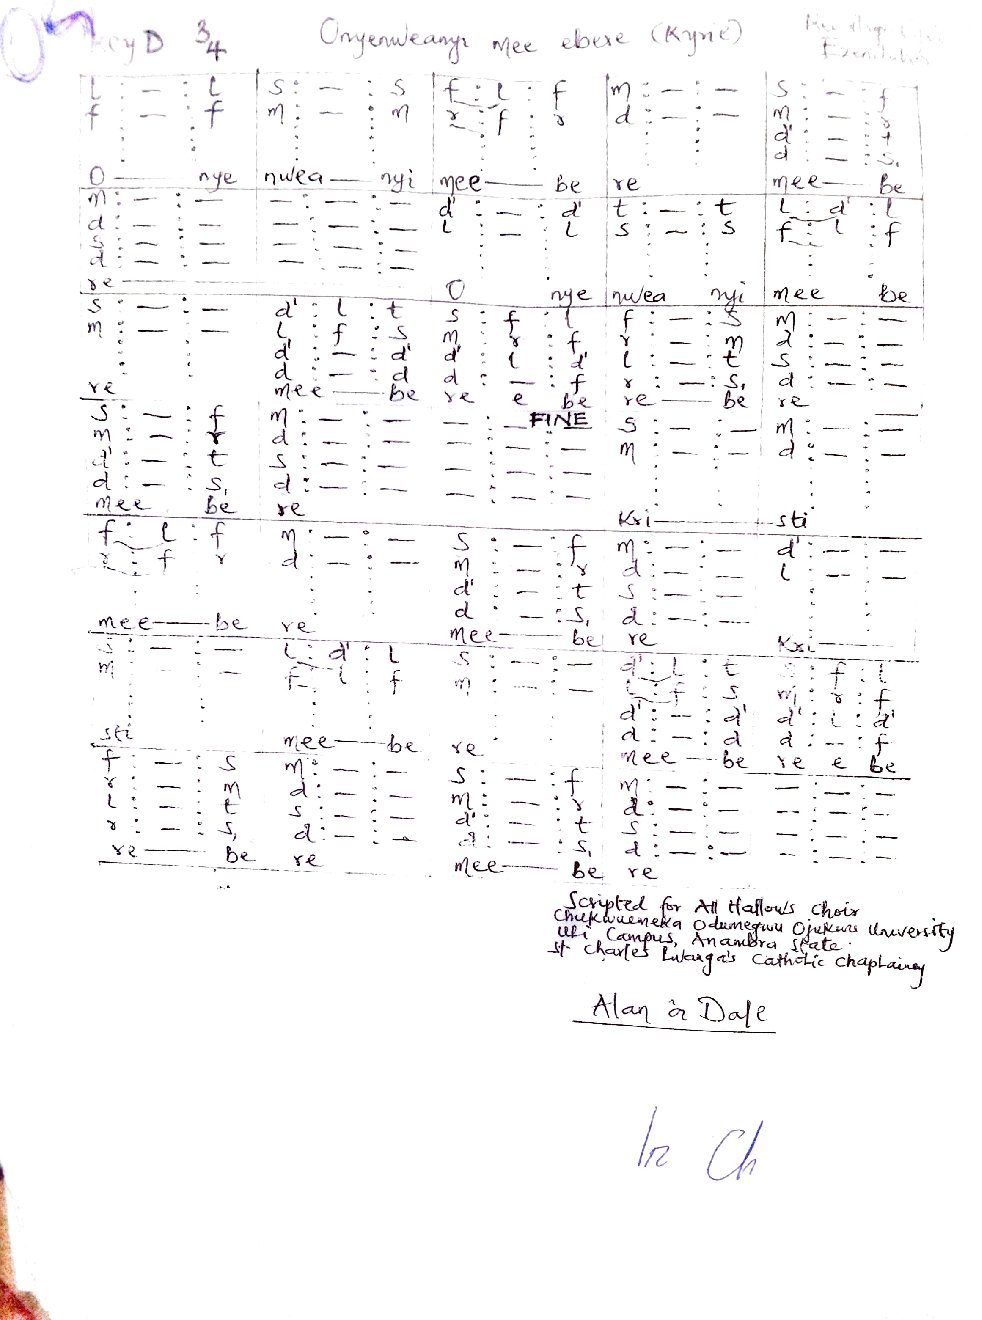 Key D 3/4 Onyenweanyi mee ebere (Kyrie)
l : — : l | s : — : s | f : l : f | m : — : — | s : — : f
f : — : f | m : — : m | r : f : r | d : — : — | m : — : r
d' : — : t
d : — : s,
O — nye | nwea — nyi | mee — be | re | mee — be
m : — : — | — : — : — | d' : — : d' | t : — : t | l : d' : l
d : — : — | — : — : — | l : — : l | s : — : s | f : l : f
s : — : — | — : — : —
d : — : — | — : — : —
re — | O nye | nwea nyi | mee be
s : — : — | d' : l : t | s : f : l | f : — : s | m : — : —
m : — : — | l : f : s | m : r : f | r : — : m | d : — : —
d' : — : d' | d' : l : d' | l : — : t | s : — : —
d : — : d | d : — : f | r : — : s, | d : — : —
re | mee — be | re e be | re — be | re
s : — : f | m : — : — | — : — : — FINE | s : — : — | m : — : —
m : — : r | d : — : — | — : — : — | m : — : — | d : — : —
d' : — : t | s : — : — | — : — : —
d : — : s, | d : — : — | — : — : —
mee be | re | Kri — | sti
f : l : f | m : — : — | s : — : f | m : — : — | d' : — : —
r : f : r | d : — : — | m : — : r | d : — : — | l : — : —
d' : — : t | s : — : —
d : — : s, | d : — : —
mee — be | re | mee — be | re | Kri —
s : — : — | l : d' : l | s : — : — | d' : l : t | s : f : l
m : — : — | f : l : f | m : — : — | l : f : s | m : r : f
d' : — : d' | d' : l : d'
d : — : d | d : — : f
sti | mee — be | re | mee — be | re e be
f : — : s | m : — : — | s : — : f | m : — : — | — : — : —
r : — : m | d : — : — | m : — : r | d : — : — | — : — : —
l : — : t | s : — : — | d' : — : t | s : — : — | — : — : —
r : — : s, | d : — : — | d : — : s, | d : — : — | — : — : —
re — be | re | mee — be | re
Scripted for All Hallows Choir
Chukwuemeka Odumegwu Ojukwu University
Uli Campus, Anambra State.
St Charles Lwanga's Catholic Chaplaincy
Alan